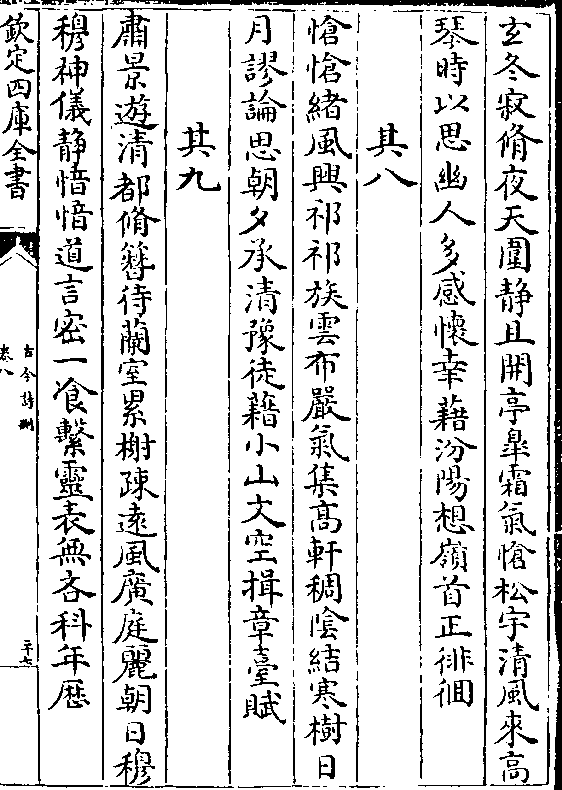 玄冬寂脩夜天圍静且開亭臯霜氣愴松宇清風來高
琴時以思幽人多感懷幸藉汾陽想嶺首正徘徊
其八
愴愴緒風興祁祁族雲布嚴氣集髙軒稠陰結寒樹日
月謬論思朝夕承清豫徒籍小山文空揖章臺賦
其九
肅景遊清都脩簪待蘭室累榭疎遠風廣庭麗朝日穆
穆神儀静愔愔道言密一飡繫靈表無吝科年厯
欽定四庫全書
古今詩刪
卷八
二十七